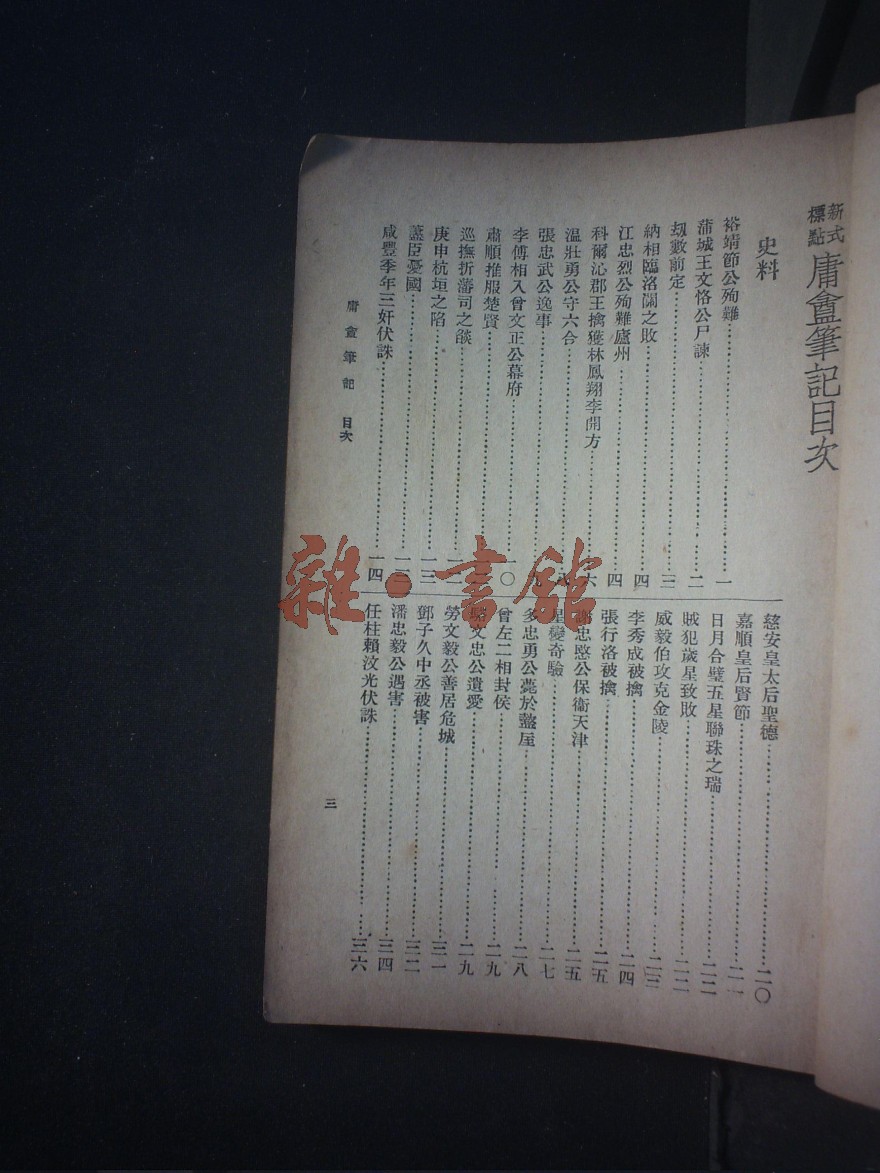 新式標點 庸盦筆記目次
史料
裕靖節公殉難……一
蒲城王文恪公尸諫……二
刼數前定……三
納相臨洛關之敗……四
江忠烈公殉難廬州……四
科爾沁郡王擒獲林鳳翔李開方……六
溫壯勇公守六合……八
張忠武公逸事……九
李傅相入曾文正公幕府……一〇
肅順推服楚賢
巡撫折藩司之燄……一二
庚申杭垣之陷……一三
藎臣憂國……一三
咸豐季年三奸伏誅……一四
慈安皇太后聖德……二〇
嘉順皇后賢節……二一
日月合璧五星聯珠之瑞……二二
賊犯歲星致敗……二二
威毅伯攻克金陵……二三
李秀成被擒……二四
張行洛被擒……二五
謝忠愍公保衛天津……二五
星變奇驗……二七
多忠勇公薨於盩厔……二八
曾左二相封侯……二九
駱文忠公遺愛……二九
勞文毅公善居危城……三一
鄧子久中丞被害……三二
潘忠毅公遇害……三四
任柱賴汶光伏誅……三六
庸盦筆記 目次
三
雜·書館